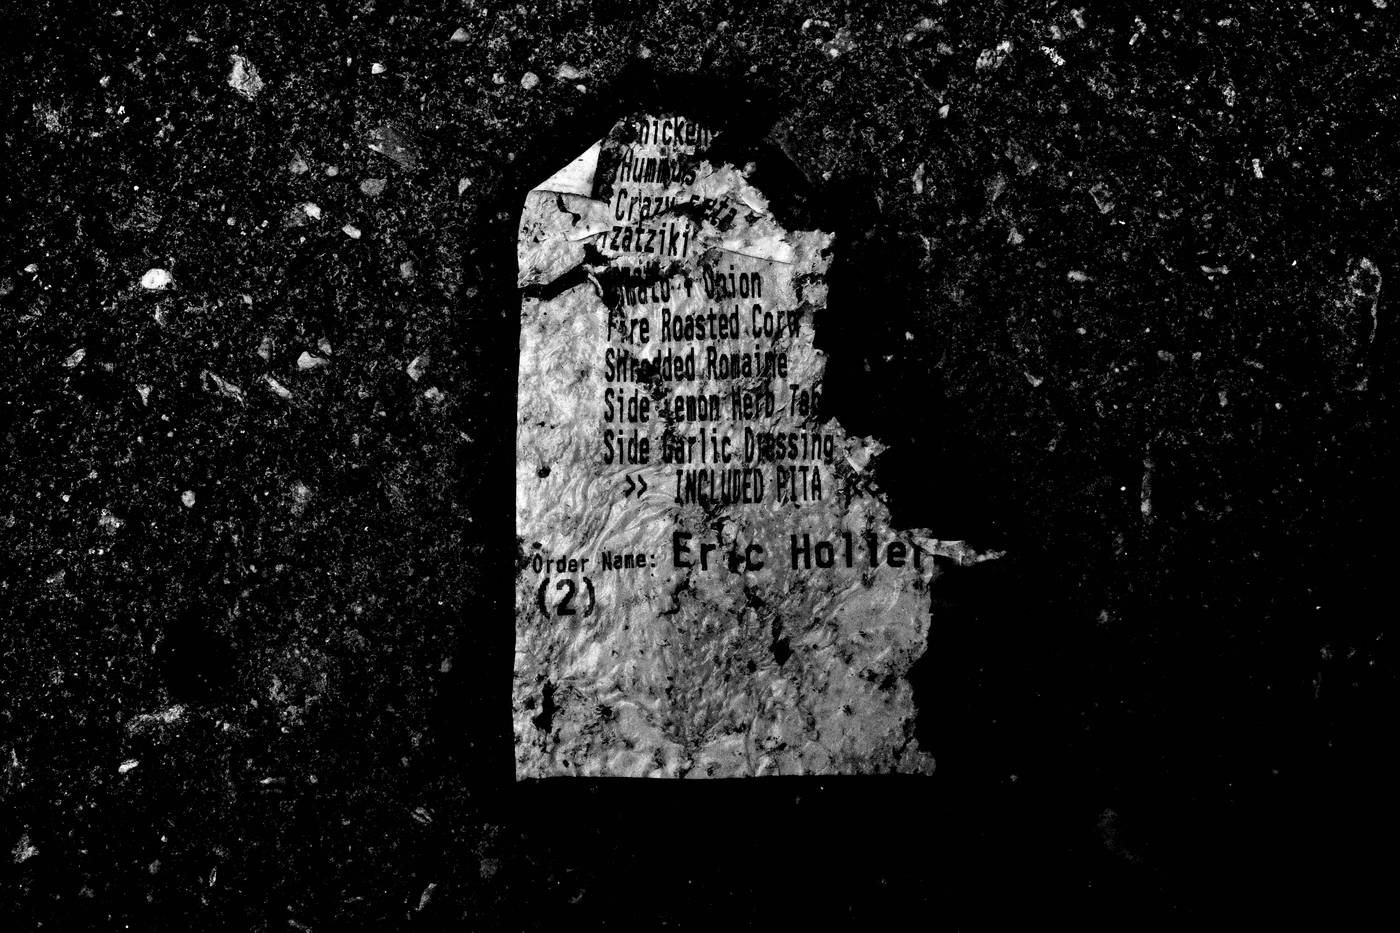 hicken
Hummus
Crazy Feta
zatziki
mato + Onion
Fire Roasted Corn
SHredded Romaine
Side Lemon Herb Tah
Side Garlic Dressing
>> INCLUDED PITA <<
Order Name: Eric Holler
(2)